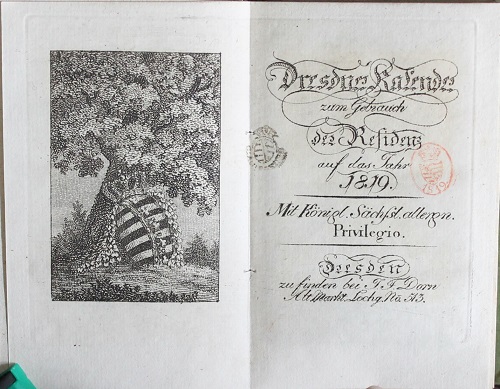 Dresdner Kalender
zum Gebrauch
der Residenz
auf das Jahr
1819.
Mit Königl. Sächsl. allergn.
Privilegio.
Dresden
zu finden bei J. F. Dorn
Alt Markt No. 513.
1819